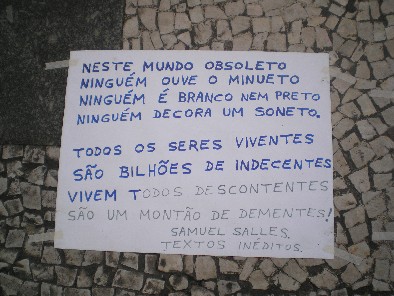 NESTE MUNDO OBSOLETO
NINGUÉM OUVE O MINUETO
NINGUÉM É BRANCO NEM PRETO
NINGUÉM DECORA UM SONETO.
TODOS OS SERES VIVENTES
SÃO BILHÕES DE INDECENTES
VIVEM TODOS DESCONTENTES
SÃO UM MONTÃO DE DEMENTES!
SAMUEL SALLES.
TEXTOS INÉDITOS.